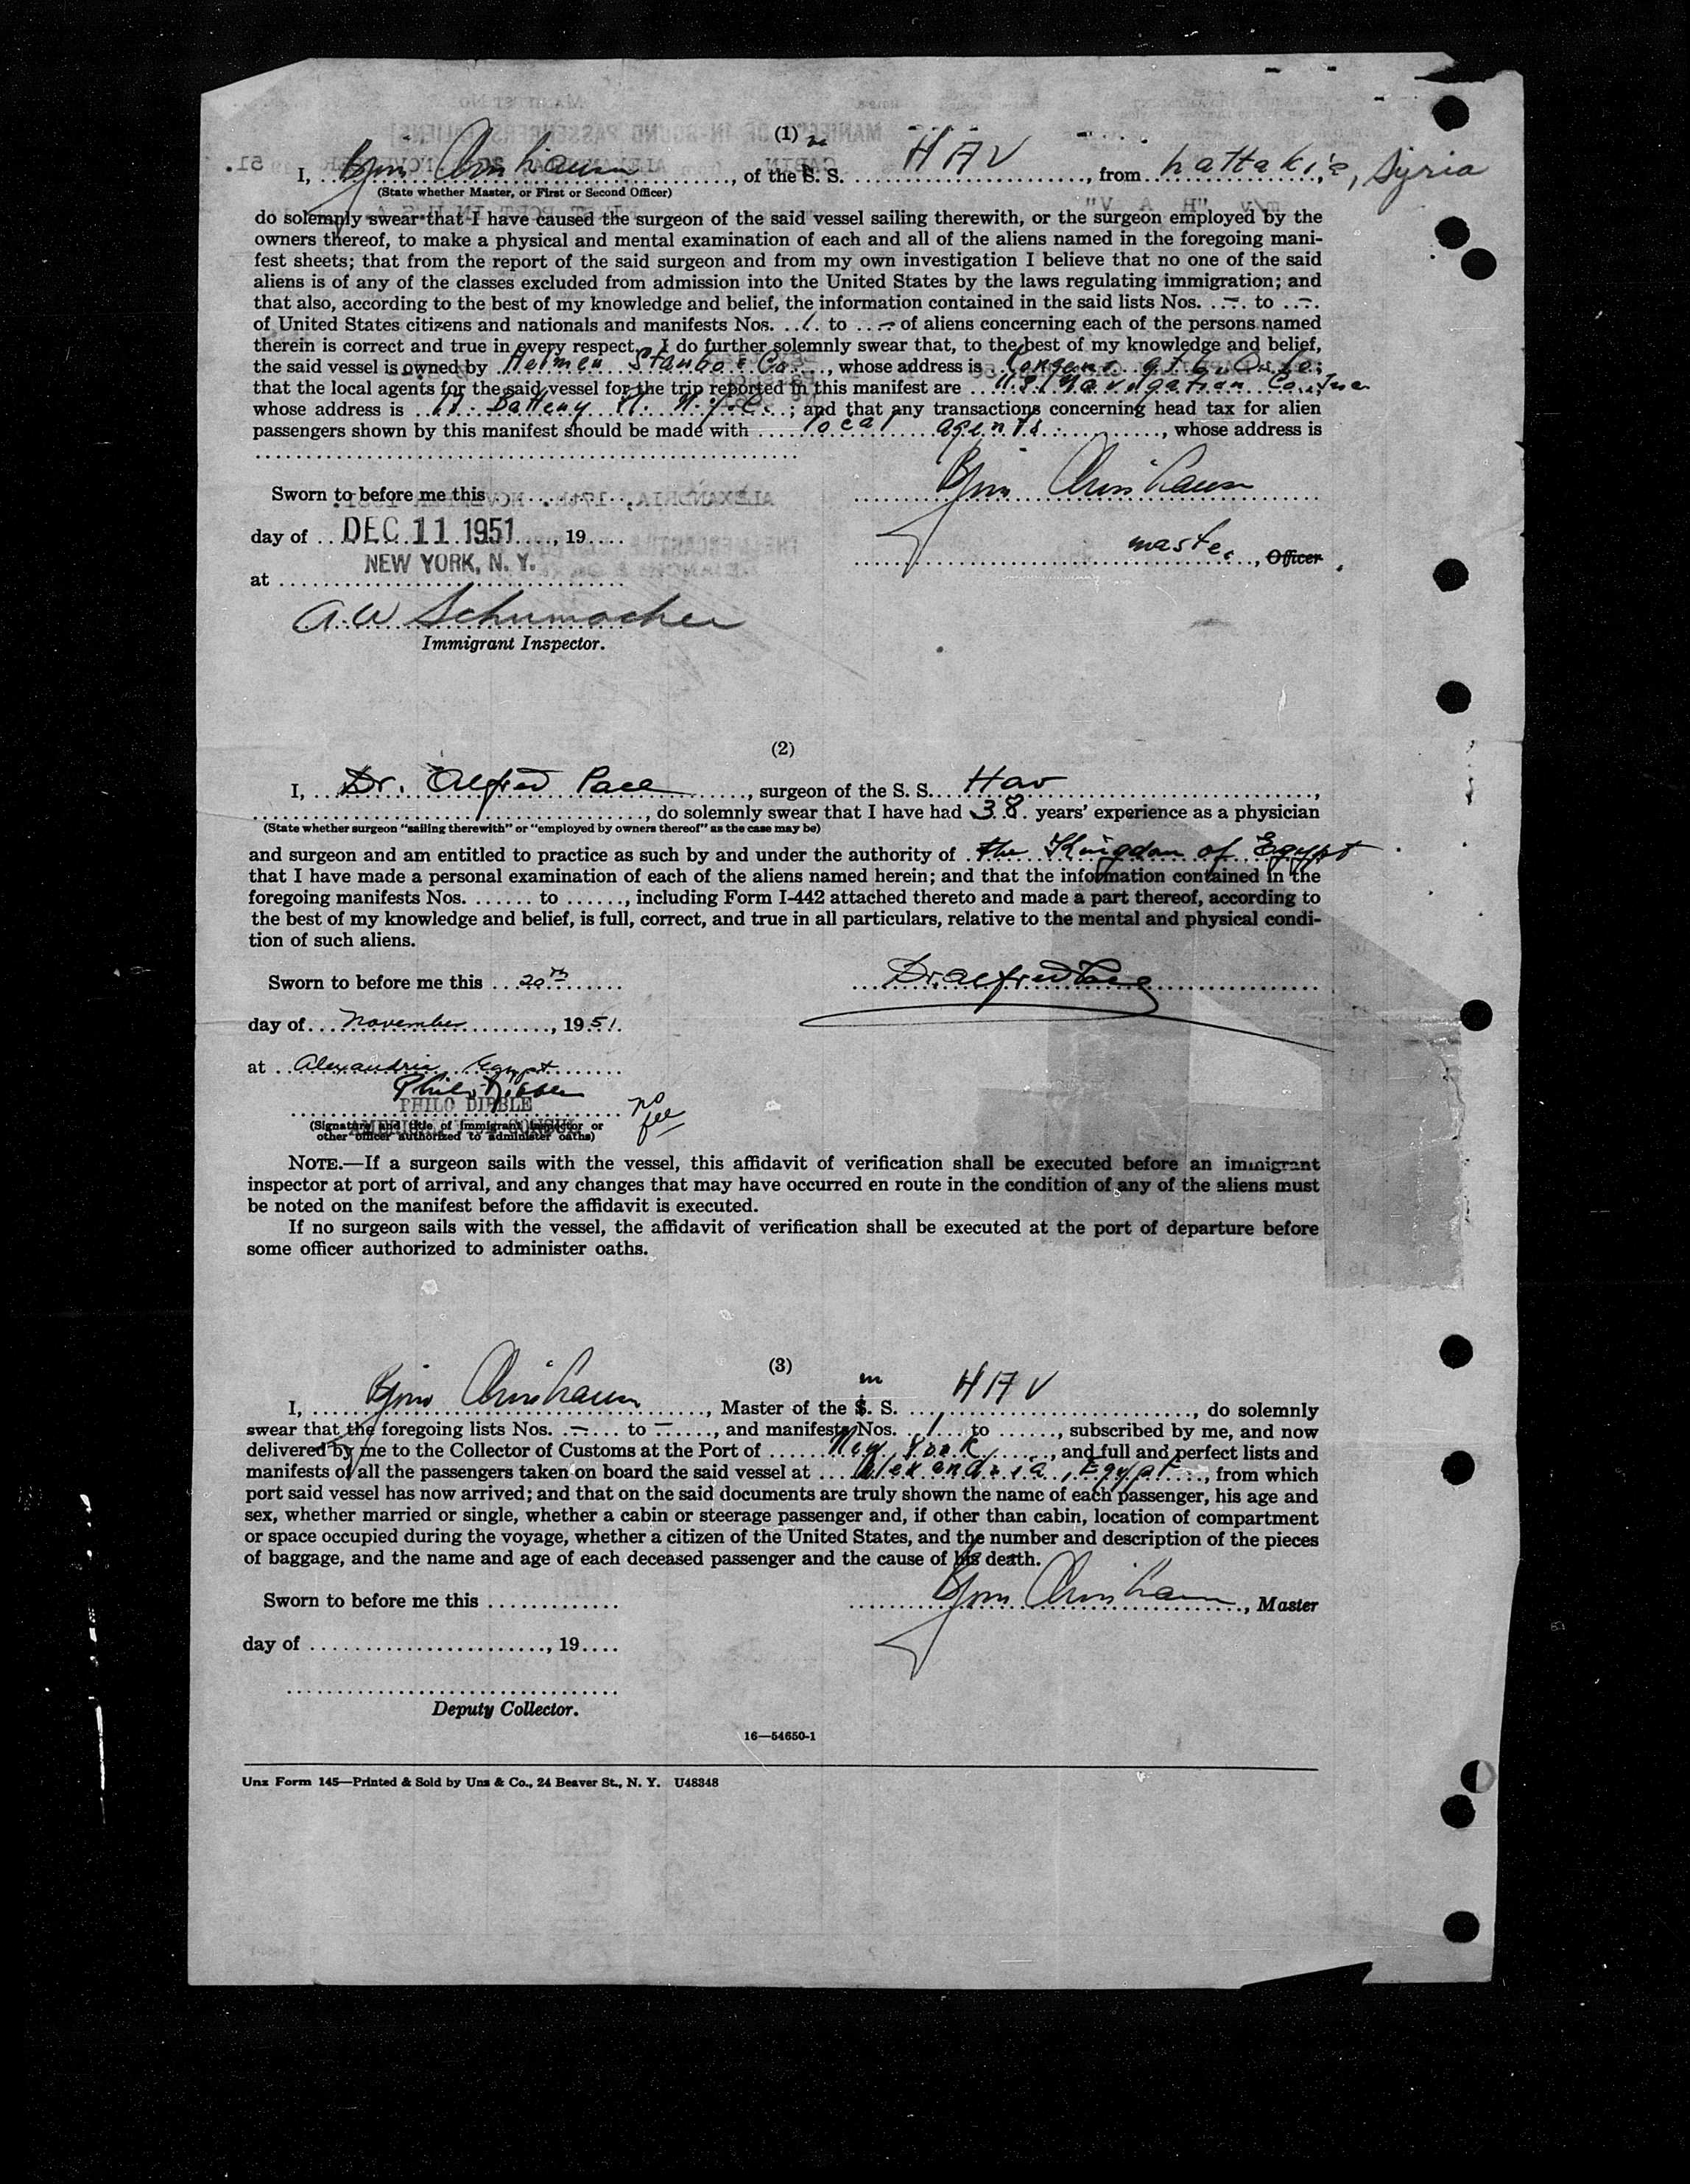 (1)
I, Bjørn Christiansen, of the S. S. HAV, from Lattakia, Syria
(State whether Master, or First or Second Officer)
do solemnly swear that I have caused the surgeon of the said vessel sailing therewith, or the surgeon employed by the
owners thereof, to make a physical and mental examination of each and all of the aliens named in the foregoing mani-
fest sheets; that from the report of the said surgeon and from my own investigation I believe that no one of the said
aliens is of any of the classes excluded from admission into the United States by the laws regulating immigration; and
that also, according to the best of my knowledge and belief, the information contained in the said lists Nos. - to -
of United States citizens and nationals and manifests Nos. 1 to - of aliens concerning each of the persons named
therein is correct and true in every respect. I do further solemnly swear that, to the best of my knowledge and belief,
the said vessel is owned by Helmer Staubo & Co., whose address is Oslo;
that the local agents for the said vessel for the trip reported in this manifest are U.S. Navigation Co., Inc
whose address is Battery Pl. N.Y.C.; and that any transactions concerning head tax for alien
passengers shown by this manifest should be made with local agents, whose address is
Sworn to before me this
day of DEC 11 1951, 19
master, Officer
NEW YORK, N. Y.
at
A W Schumacher
Immigrant Inspector.
(2)
I, Dr. Alfred Pace, surgeon of the S. S. Hav,
, do solemnly swear that I have had 38 years' experience as a physician
(State whether surgeon "sailing therewith" or "employed by owners thereof" as the case may be)
and surgeon and am entitled to practice as such by and under the authority of the Kingdom of Egypt
that I have made a personal examination of each of the aliens named herein; and that the information contained in the
foregoing manifests Nos. to, including Form I-442 attached thereto and made a part thereof, according to
the best of my knowledge and belief, is full, correct, and true in all particulars, relative to the mental and physical condi-
tion of such aliens.
Sworn to before me this 20th
Dr. Alfred Pace
day of November, 1951.
at Alexandria Egypt
Philo Dibble
PHILO DIBBLE
no fee
(Signature and title of immigrant inspector or
other officer authorized to administer oaths)
NOTE.—If a surgeon sails with the vessel, this affidavit of verification shall be executed before an immigrant
inspector at port of arrival, and any changes that may have occurred en route in the condition of any of the aliens must
be noted on the manifest before the affidavit is executed.
If no surgeon sails with the vessel, the affidavit of verification shall be executed at the port of departure before
some officer authorized to administer oaths.
(3)
I, , Master of the m S. S. HAV, do solemnly
swear that the foregoing lists Nos. - to -, and manifests Nos. 1 to, subscribed by me, and now
delivered by me to the Collector of Customs at the Port of New York, and full and perfect lists and
manifests of all the passengers taken on board the said vessel at Alexandria, Egypt, from which
port said vessel has now arrived; and that on the said documents are truly shown the name of each passenger, his age and
sex, whether married or single, whether a cabin or steerage passenger and, if other than cabin, location of compartment
or space occupied during the voyage, whether a citizen of the United States, and the number and description of the pieces
of baggage, and the name and age of each deceased passenger and the cause of his death.
Sworn to before me this
, Master
day of, 19
Deputy Collector.
16—54650-1
Unz Form 145—Printed & Sold by Unz & Co., 24 Beaver St., N. Y. U48348